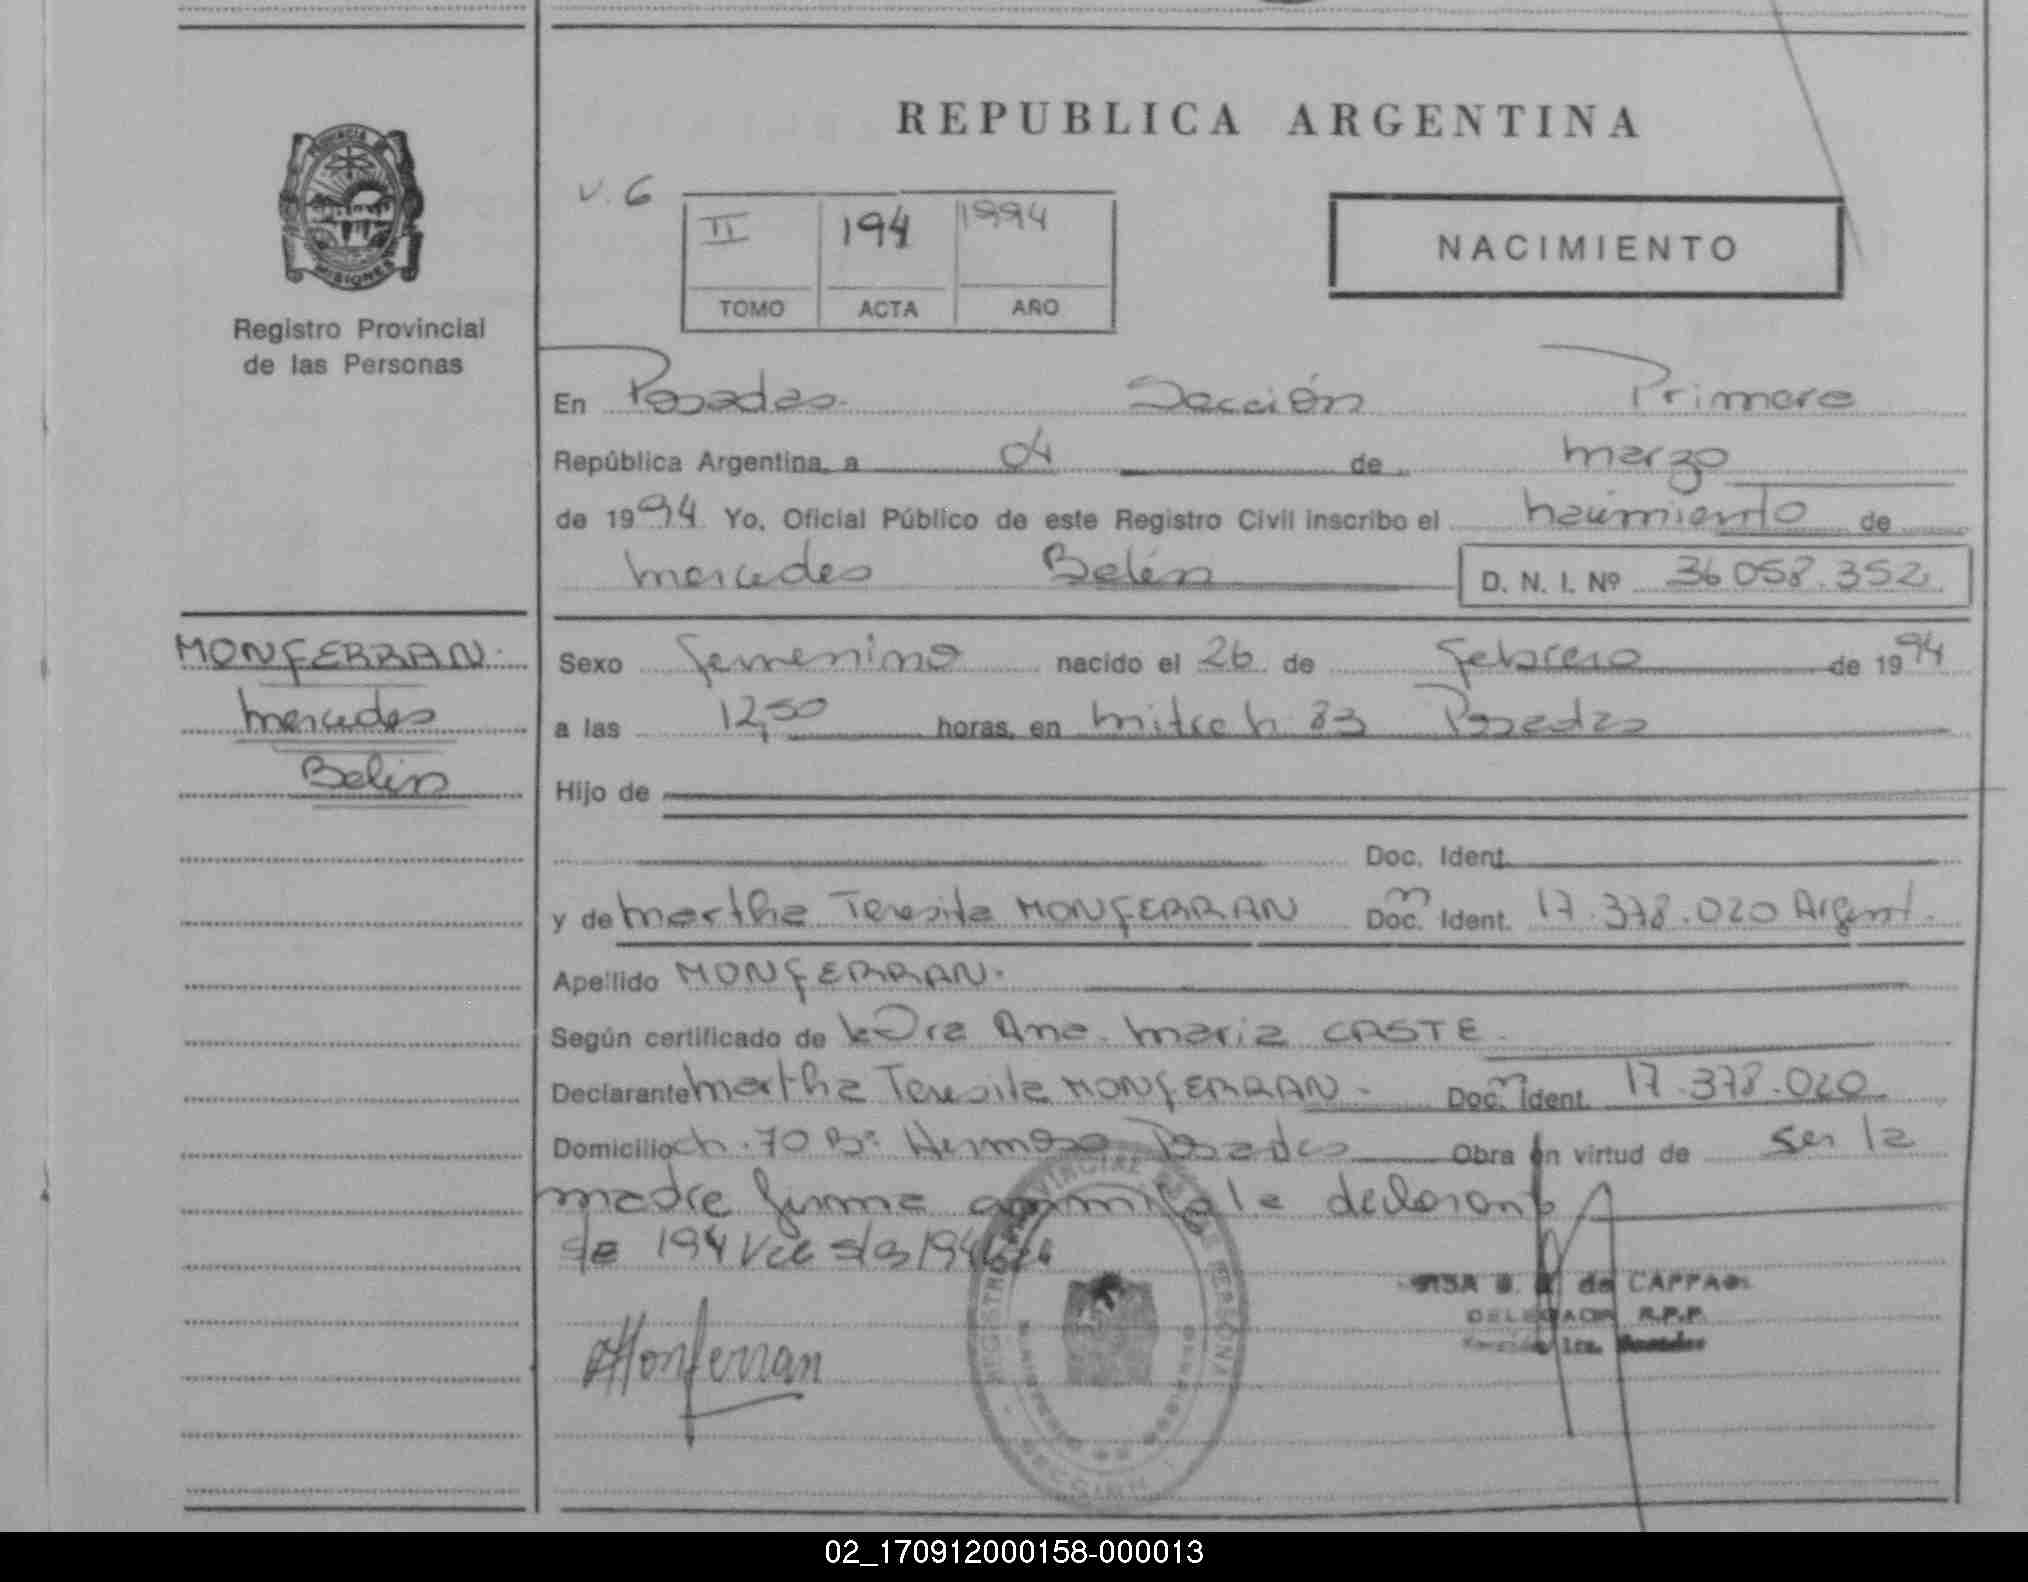 REPUBLICA ARGENTINA
PROVINCIA DE
MISIONES
Registro Provincial
de las Personas
v. 6
II 194 1994
TOMO ACTA AÑO
NACIMIENTO
En Posadas Sección Primera
República Argentina, a 04 de marzo
de 1994 Yo, Oficial Público de este Registro Civil inscribo el nacimiento de
Mercedes Belén D. N. I. Nº 36 058.352
MONFERRAN.
Mercedes
Belén
Sexo femenino nacido el 26 de febrero de 1994
a las 12,50 horas, en Mitre h 83 Posadas
Hijo de
Doc. Ident.
y de Martha Teresita MONFERRAN Doc. Ident. 17.378.020 Argent.
Apellido MONFERRAN.
Según certificado de la Dra Ana Maria CASTE
Declarante Martha Teresita MONFERRAN - Doc. Ident. 17.378.020
Domicilio ch. 70 Bº Hermoso Posadas Obra en virtud de ser la
madre firma conmigo la declarante
194 Vale
Monferran
de CAPPA
DELEGADA R.P.P.
1ra. Posadas
02_170912000158-000013